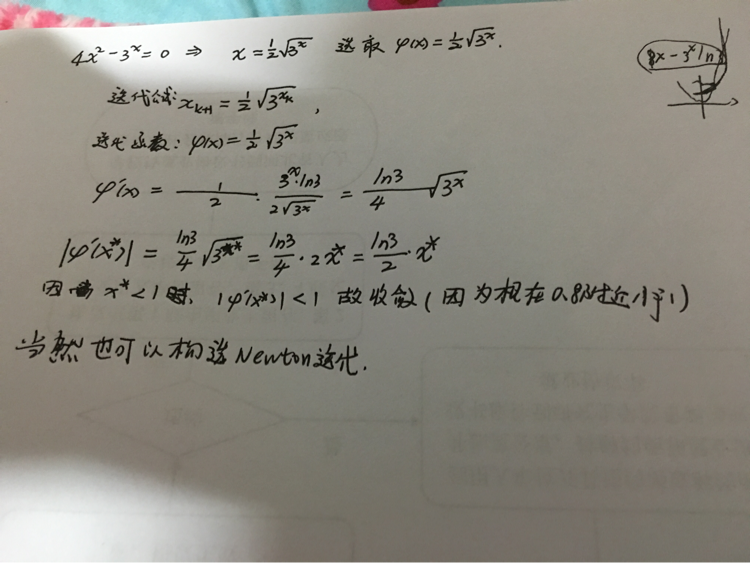 4x²-3ˣ=0 ⇒ x=½√3ˣ 选取 φ(x)=½√3ˣ.
8x-3ˣln
迭代公式: xₖ₊₁=½√3ˣᵏ,
迭代函数: φ(x)=½√3ˣ
φ'(x) = 1/2 · 3ˣ·ln3/2√3ˣ = ln3/4 √3ˣ
|φ'(x*)| = ln3/4 √3ˣ* = ln3/4 · 2x* = ln3/2 · x*
因 x*<1时, |φ'(x*)|<1 故收敛(因为根在0.8附近小于1)
当然也可以构造Newton迭代.